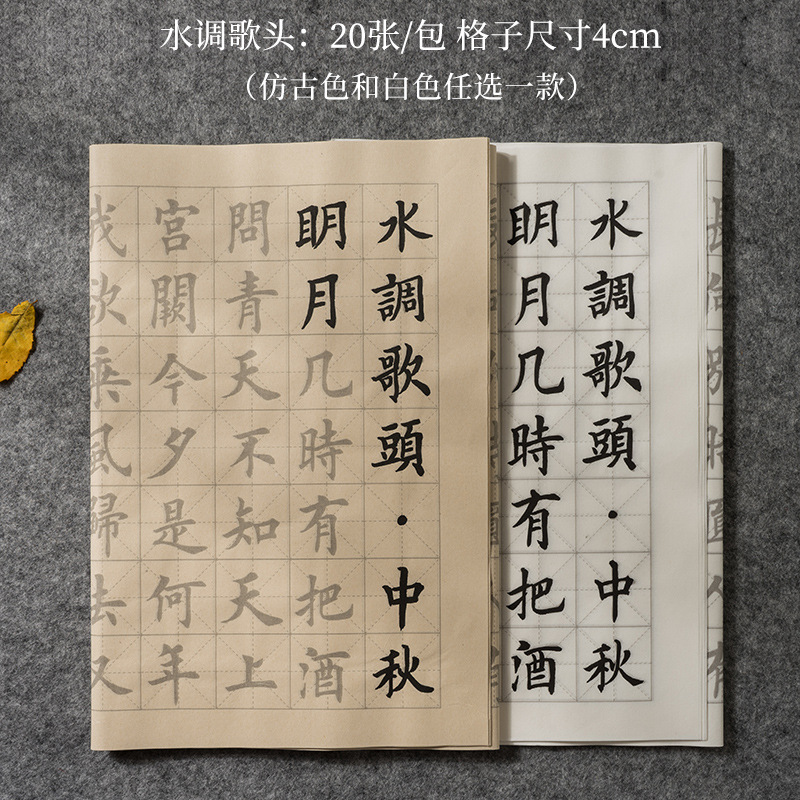 水调歌头：20张/包 格子尺寸4cm
（仿古色和白色任选一款）
水調歌頭·中秋
明月几時有把酒
問青天不知天上
宮闕今夕是何年
我欲乘風歸去又
水調歌頭·中秋
明月几時有把酒